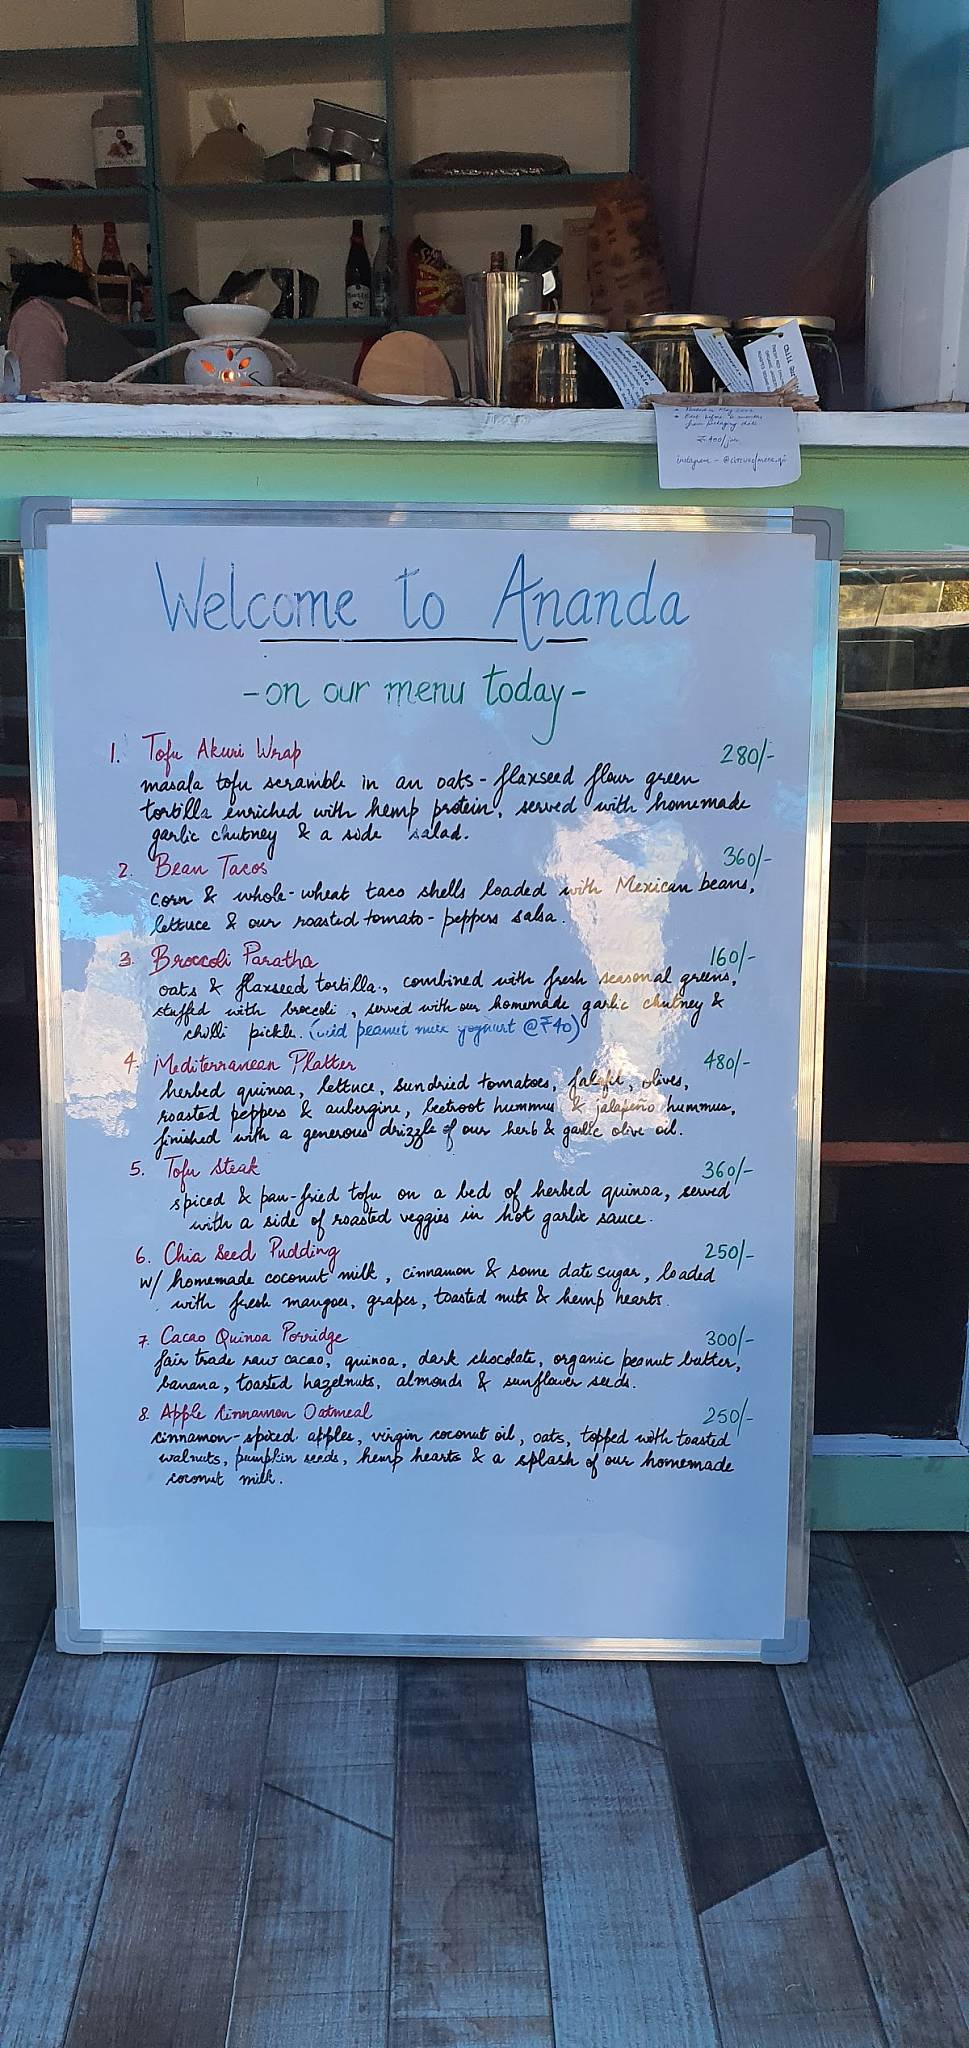 Chilli Gar
Best before 6 months
from packaging date
₹400/jar
instagram - @
Welcome to Ananda
-on our menu today-
1. Tofu Akuri Wrap 280/-
masala tofu scramble in an oats-flaxseed flour green
tortilla enriched with hemp protein, served with homemade
garlic chutney & a side salad.
2. Bean Tacos 360/-
corn & whole-wheat taco shells loaded with Mexican beans,
lettuce & our roasted tomato-peppers salsa.
3. Broccoli Paratha 160/-
oats & flaxseed tortilla, combined with fresh seasonal greens,
stuffed with broccoli, served with our homemade garlic chutney &
chilli pickle. (add peanut milk yoghurt @ ₹40)
4. Mediterranean Platter 480/-
herbed quinoa, lettuce, sundried tomatoes, falafel, olives,
roasted peppers & aubergine, beetroot hummus & jalapeño hummus,
finished with a generous drizzle of our herb & garlic olive oil.
5. Tofu Steak 360/-
spiced & pan-fried tofu on a bed of herbed quinoa, served
with a side of roasted veggies in hot garlic sauce.
6. Chia Seed Pudding 250/-
w/ homemade coconut milk, cinnamon & some date sugar, loaded
with fresh mangoes, grapes, toasted nuts & hemp hearts.
7. Cacao Quinoa Porridge 300/-
fair trade raw cacao, quinoa, dark chocolate, organic peanut butter,
banana, toasted hazelnuts, almonds & sunflower seeds.
8. Apple Cinnamon Oatmeal 250/-
cinnamon-spiced apples, virgin coconut oil, oats, topped with toasted
walnuts, pumpkin seeds, hemp hearts & a splash of our homemade
coconut milk.